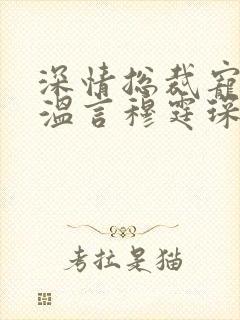 深情总裁宠
温言穆霆琛
考拉是猫